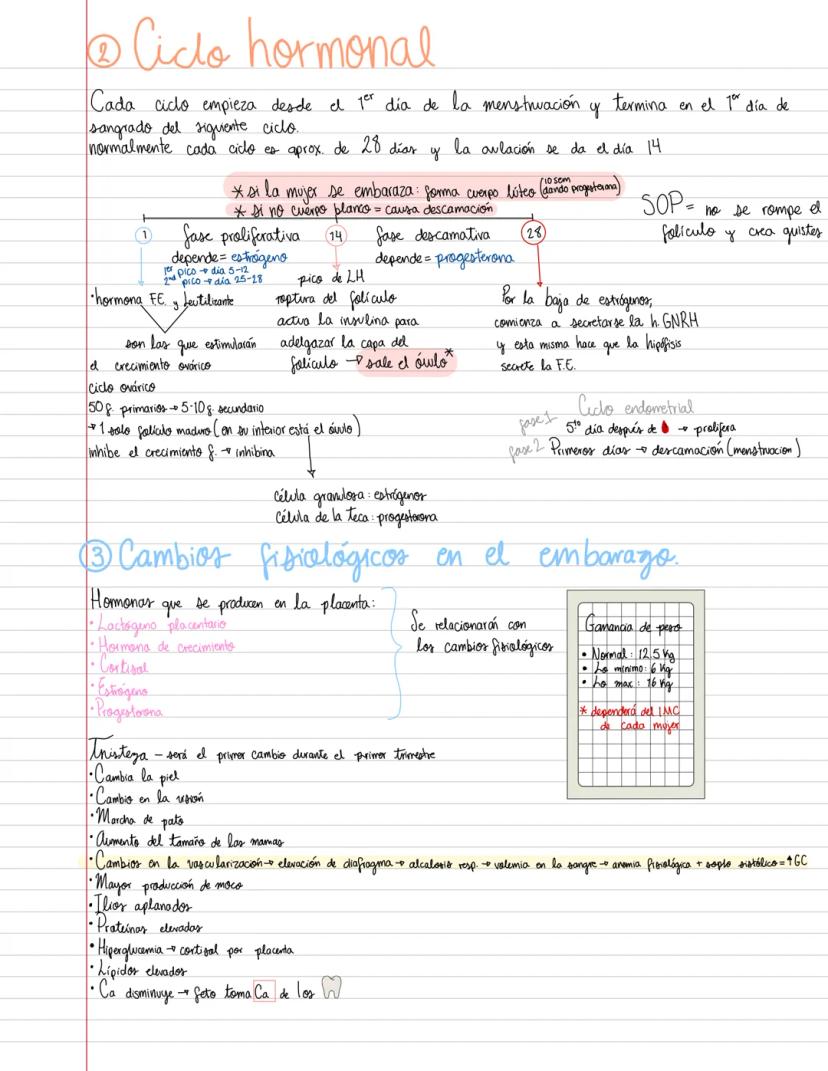 ② Ciclo hormonal
Cada ciclo empieza desde el 1er día de la menstruación y termina en el 1er día de
sangrado del siguiente ciclo.
normalmente cada ciclo es aprox. de 28 días y la ovulación se da el día 14
* si la mujer se embaraza: forma cuerpo lúteo (10 sem dando progesterona)
* si no cuerpo blanco = causa descamación
SOP = no se rompe el
folículo y crea quistes
1 fase proliferativa 14 fase descamativa 28
depende = estrógeno
1er pico → día 5-12
2nd pico → día 25-28
depende = progesterona
• hormona F.E. y Leutilizante
son las que estimularán
el crecimiento ovárico
pico de LH
ruptura del folículo
activa la insulina para
adelgazar la capa del
folículo → sale el óvulo*
Por la baja de estrógenos,
comienza a secretarse la h. GNRH
y esta misma hace que la hipófisis
secrete la F.E.
ciclo ovárico
50 f. primarios → 5-10 f. secundario
→ 1 solo folículo maduro (en su interior está el óvulo)
inhibe el crecimiento f. → inhibina
célula granulosa: estrógenos
célula de la Teca: progesterona
Ciclo endometrial
fase 1 5to día después de → prolifera
fase 2 Primeros días → descamación (menstruacion)
③ Cambios fisiológicos en el embarazo.
Hormonas que se producen en la placenta:
• Lactogeno placentario
• Hormona de crecimiento
• Cortisol
• Estrógeno
• Progesterona
Se relacionarán con
los cambios fisiológicos
Ganancia de peso
• Normal: 12.5 Kg
• Lo mínimo: 6 Kg
• Lo max: 16 Kg
* dependerá del IMC
de cada mujer
Tristeza – será el primer cambio durante el primer trimestre
• Cambia la piel
• Cambio en la visión
• Marcha de pato
• Aumento del tamaño de las mamas
• Cambios en la vascularización → elevación de diafragma → alcalosis resp. → volemia en la sangre → anemia fisiológica + soplo sistólico = ↑GC
• Mayor producción de moco
• Ilios aplanados
• Proteínas elevadas
• Hiperglucemia → cortisol por placenta
• Lípidos elevados
• Ca disminuye → feto toma Ca de los